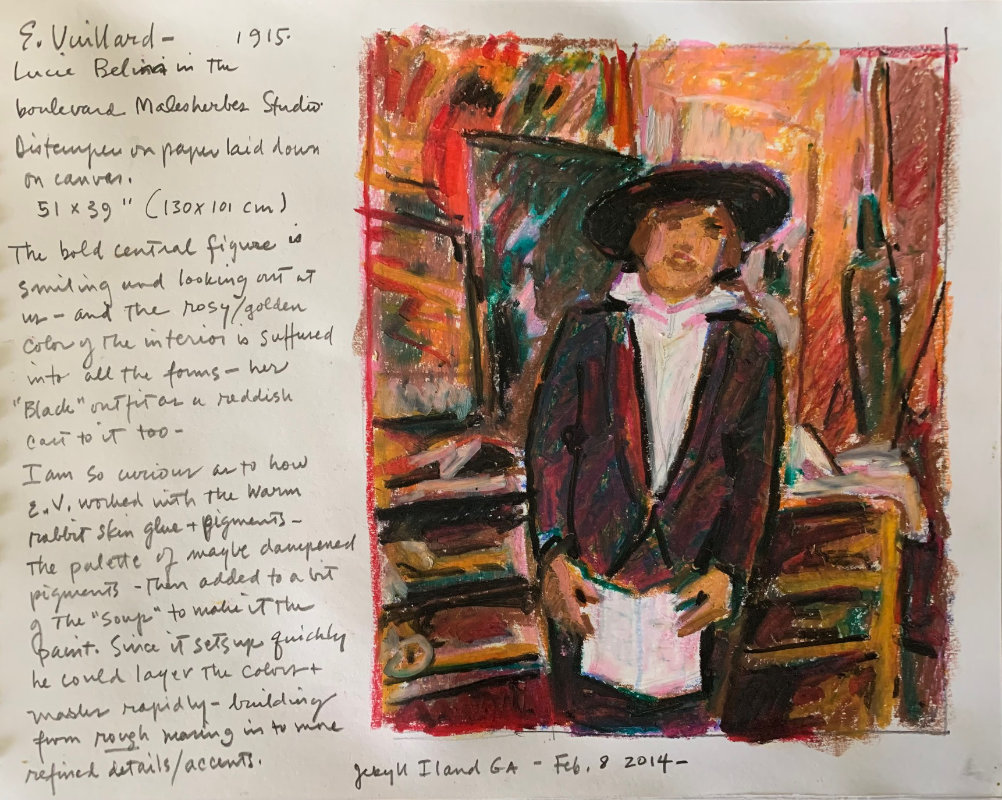 E. Vuillard - 1915.
Lucie Belin in the
boulevard Malesherbes Studio.
Distemper on paper laid down
on canvas.
51 x 39 " (130 x 101 cm)
The bold central figure is
smiling and looking out at
us - and the rosy/golden
color of the interior is suffused
into all the forms - her
"Black" outfit as a reddish
cast to it too -
I am so curious as to how
E.V. worked with the warm
rabbit skin glue + pigments -
The palette of maybe dampened
pigments - then added to a bit
of the "Soup" to make it the
paint. Since it sets up quickly
he could layer the colors +
masses rapidly - building
from rough massing in to more
refined details/accents.
Jekyll Iland GA - Feb. 8 2014 -